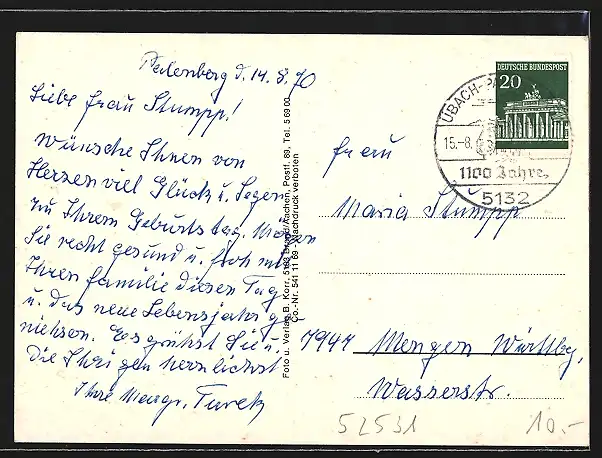 Palenberg d. 14.8.70
Liebe Frau Stumpp!
Wünsche Ihnen von
Herzen viel Glück u. Segen
zu Ihrem Geburtstag. Mögen
Sie recht gesund u. froh mit
Ihrer Familie diesen Tag
u. das neue Lebensjahr ge-
niehsen. Es grühst Sie u.
die Ihrigen herzlichst
Ihre Margr. Turek
Foto u. Verlag B. Korr, 5103 Brand/Aachen, Postf. 69, Tel. 5 69 00
Co.-Nr. 541 11 69 - Nachdruck verboten
DEUTSCHE BUNDESPOST
20
ÜBACH-PA
15.-8.
1100 Jahre
5132
Frau
Maria Stumpp
7947 Mengen Württbg.
Wasserstr.
52531
10.-